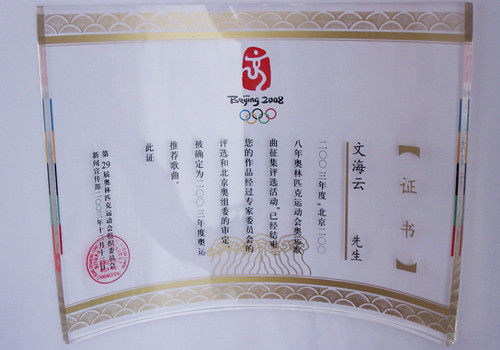 Beijing 2008
【证书】
文海云 先生
二〇〇三年度“北京二〇〇
八年奥林匹克运动会奥运歌
曲征集评选活动”已经结束
您的作品经过专家委员会的
评选和北京奥组委的审定，
被确定为二〇〇三年度奥运
推荐歌曲。
此证
第29届奥林匹克运动会组织委员会
新闻宣传部二〇〇三年十二月十日